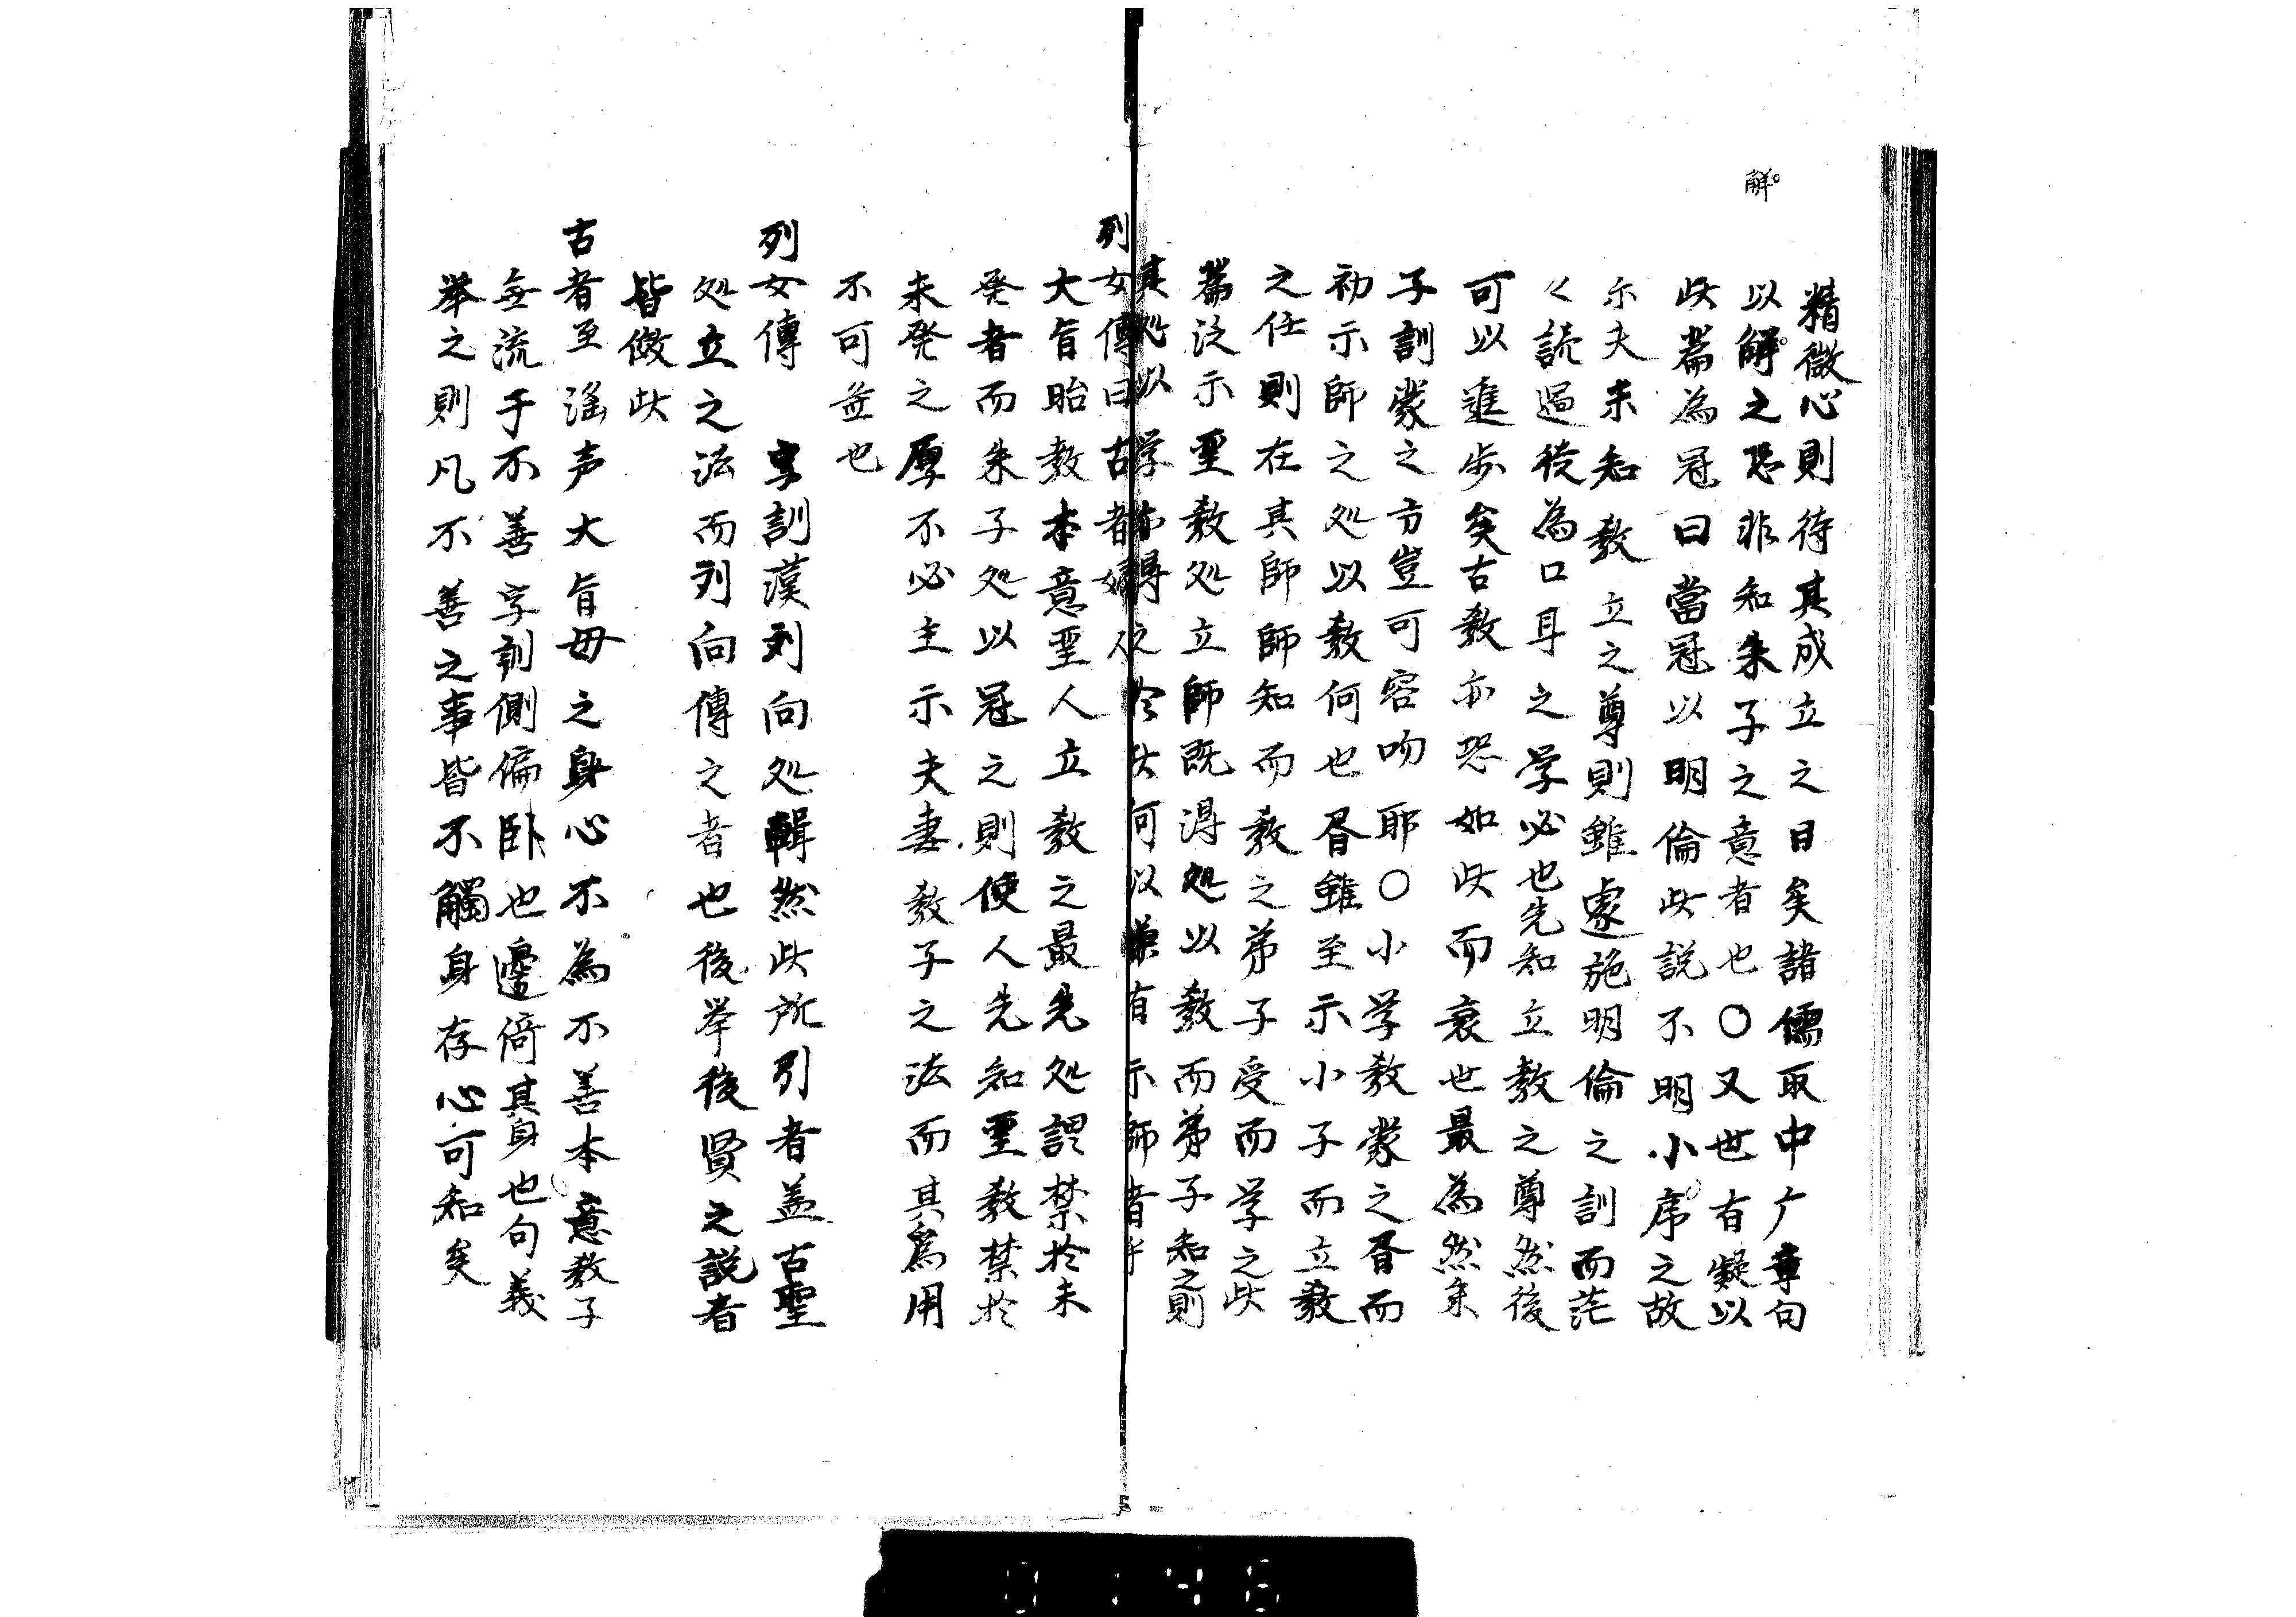 解
精微心則待其成立之日矣諸儒取中广章句
以解之恐非知朱子之意者也〇又世有疑以
此篇為冠曰當冠以明倫此説不明小序之故
尓夫未知教立之尊則雖遽施明倫之訓而茫
〱読過徒為口耳之学必也先知立教之尊然後
可以進歩矣古教亦恐如此而衰世最為然朱
子訓蒙之方豈可容吻耶〇小学教蒙之胥而
初示師之処以教何也胥雖至示小子而立教
之任則在其師師知而教之弟子受而学之此
篇泛示聖教処立師既得処以教而弟子知之則
其処以学亦得
列女傳曰古者婦
大旨胎教本意聖人立教之最先処謂禁於未
発者而朱子処以冠之則使人先知聖教禁於
未発之厚不必主示夫妻教子之法而其為用
不可並也
列女傳 字訓漢列向処輯然此所引者盖古聖
処立之法而列向傳之者也後挙後賢之説者
皆倣此
古者至滛声大旨毋之身心不為不善本意教子
無流于不善字訓側偏卧也邊倚其身也句義
挙之則凡不善之事皆不觸身存心可知矣